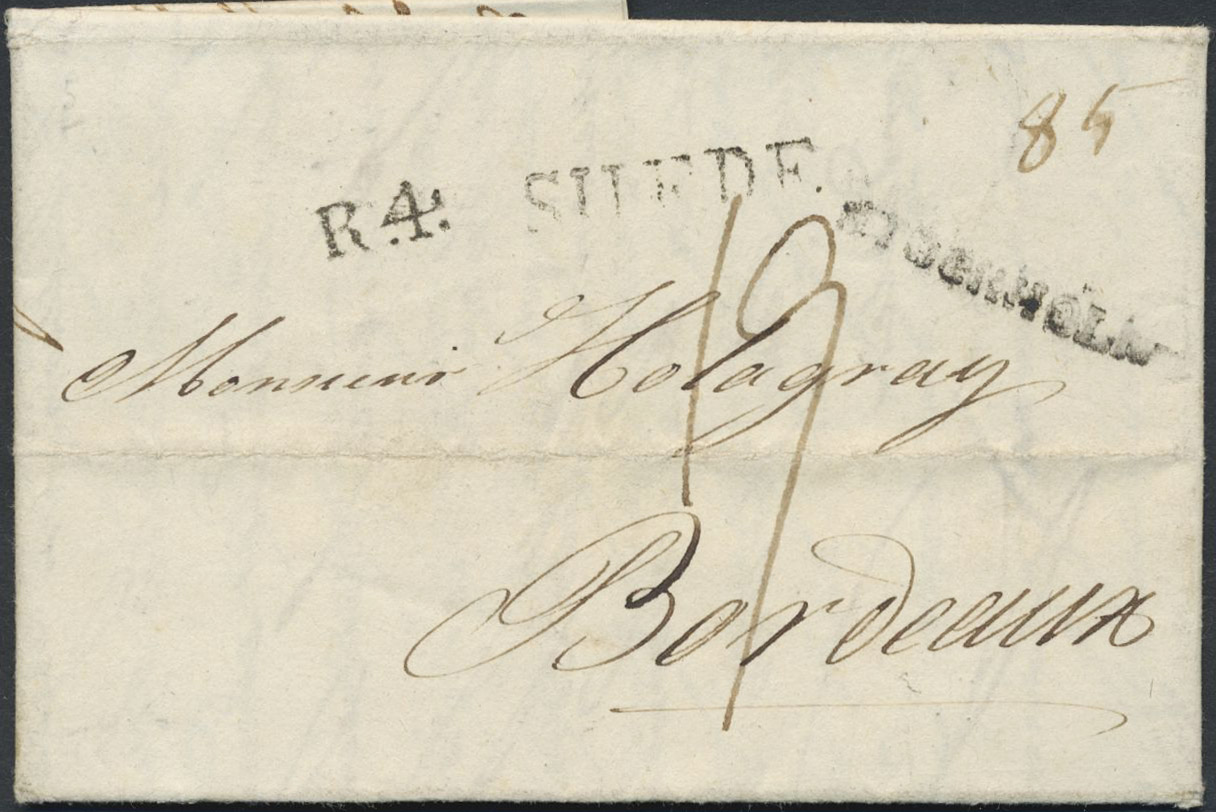 85
R.4. SUEDE.
STOCKHOLM
19
Monsieur Holagray
Bordeaux